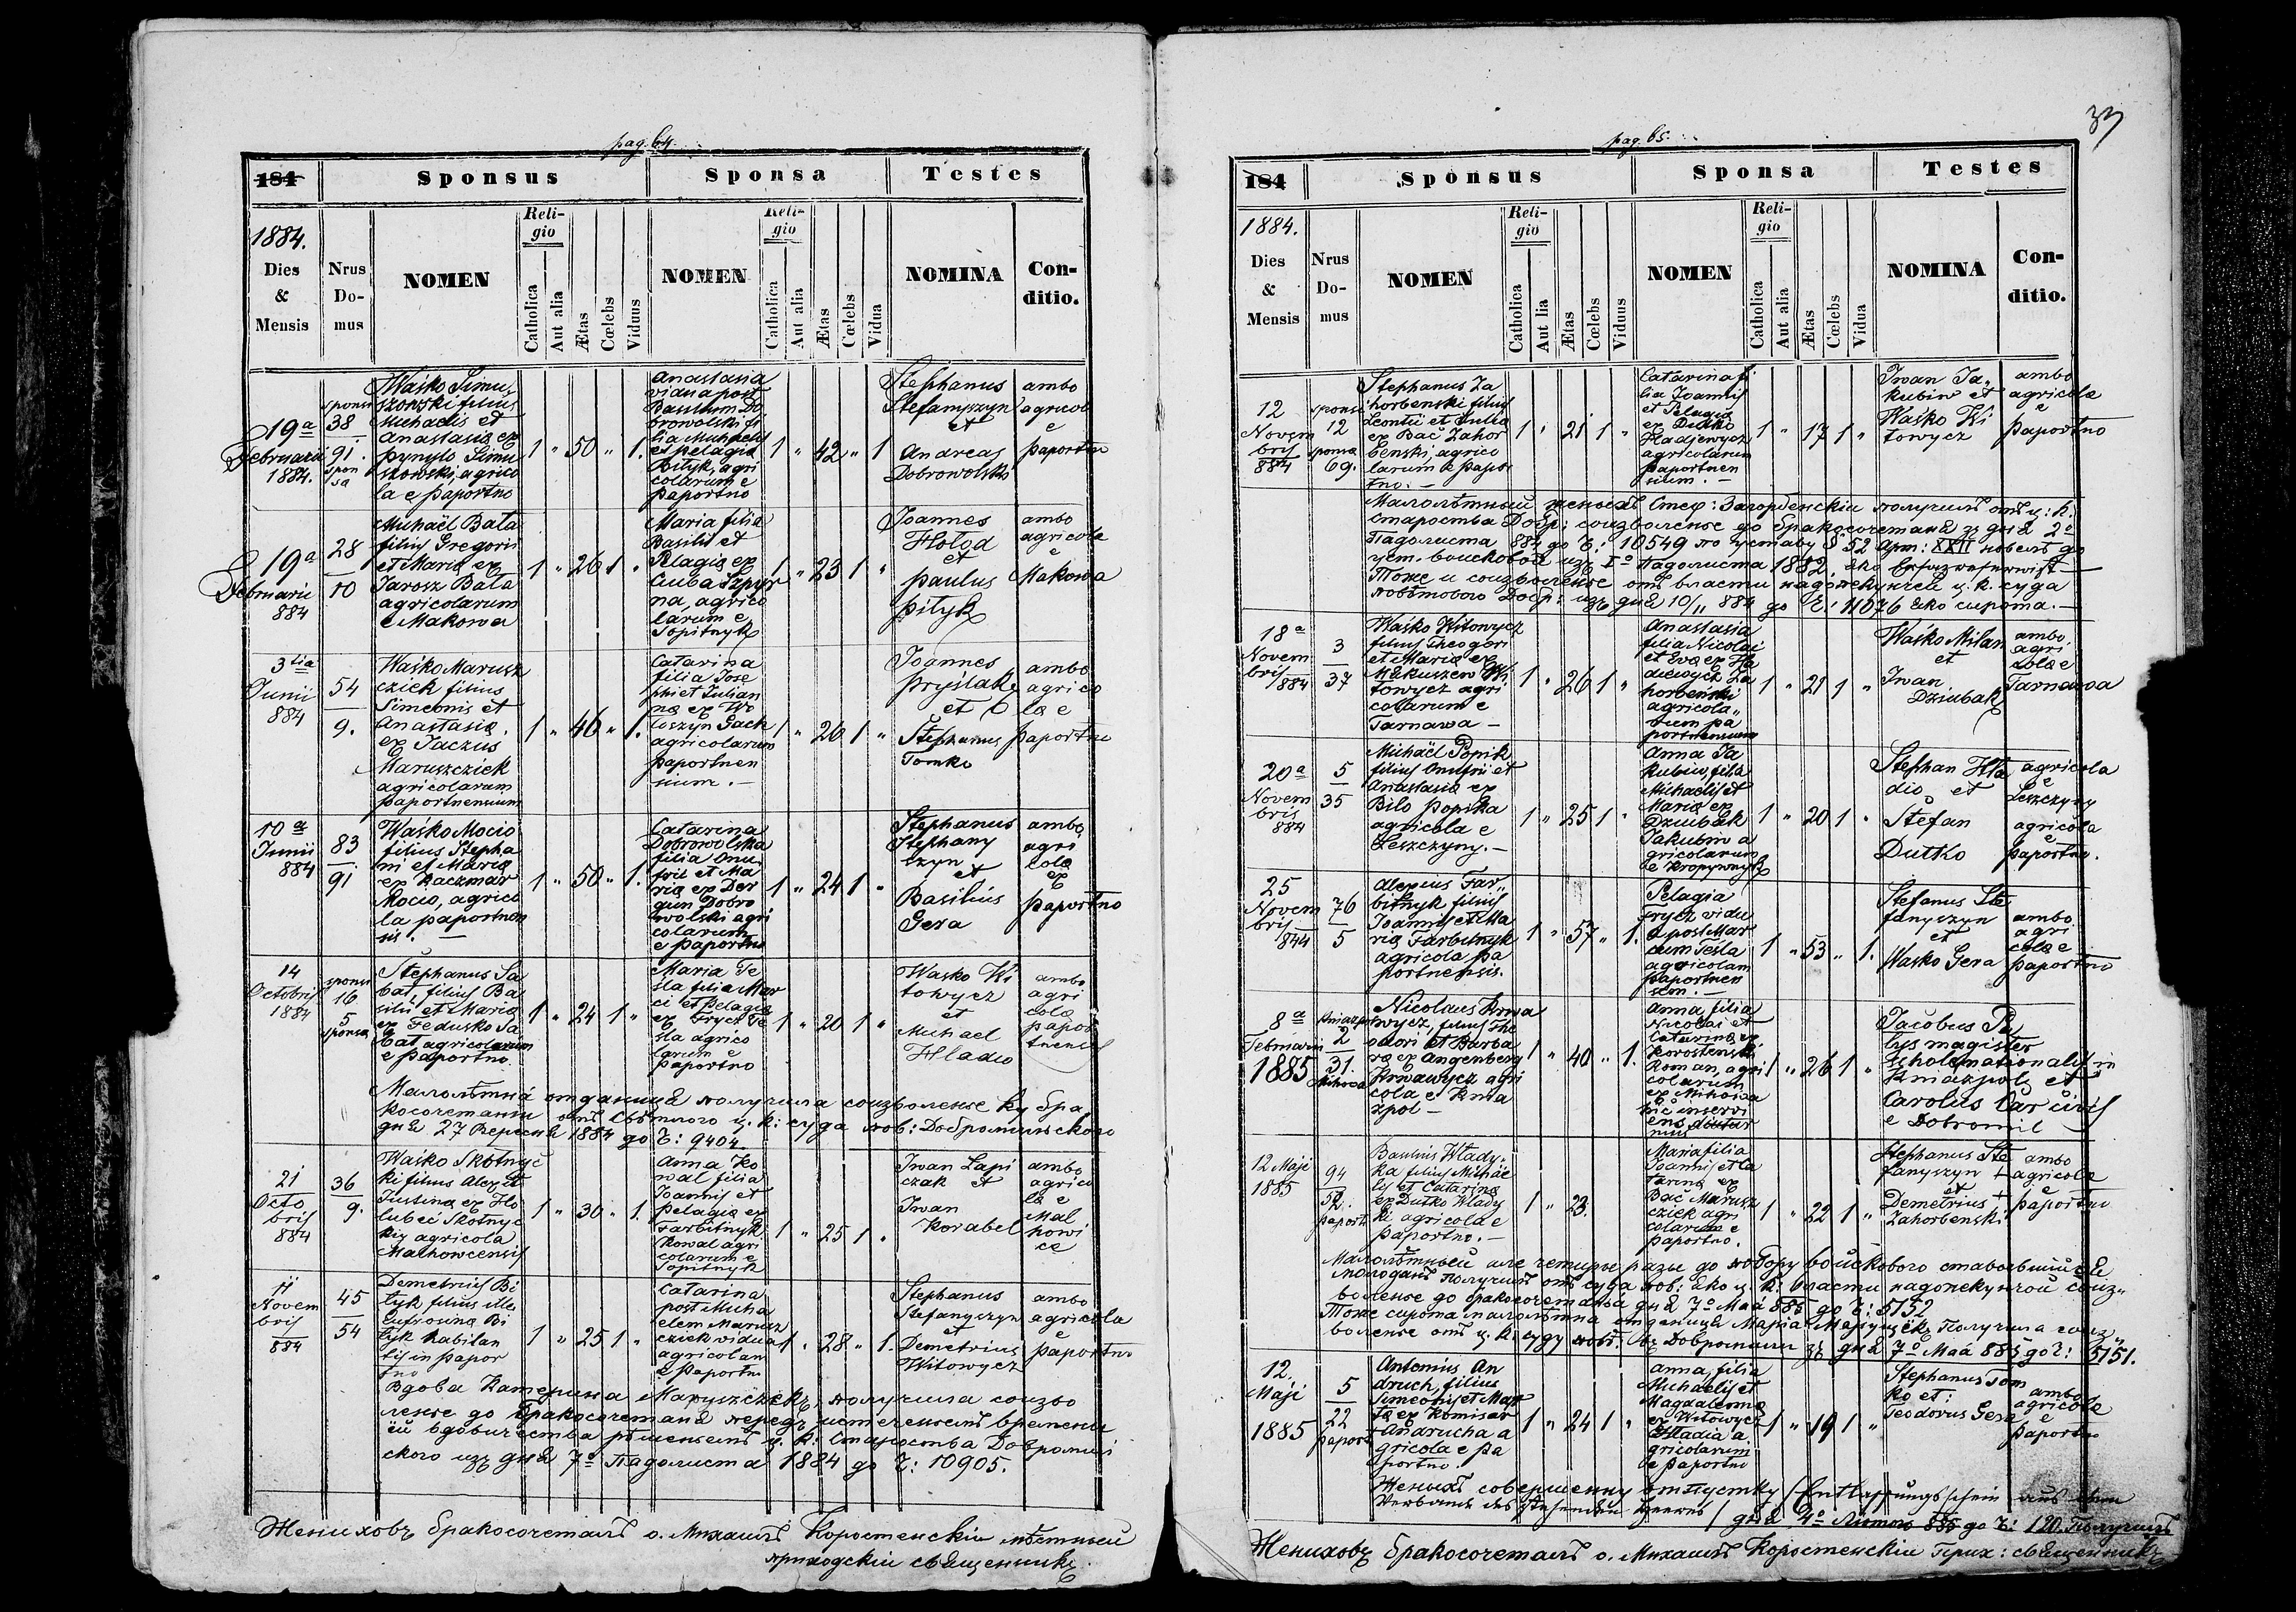 pag. 64.
184 Sponsus Sponsa Testes
1884.
Dies & Mensis
Nrus Domus
NOMEN
Religio
Catholica
Aut alia
Ætas
Cœlebs
Viduus
NOMEN
Religio
Catholica
Aut alia
Ætas
Cœlebs
Vidua
NOMINA
Conditio.
19a
Februarii
1884.
sponsi
38
91.
sponsa
Waśko Simu
szowski filius
Michaelis et
Anastasiæ ex
Pynyło Simu
szowski, agrico
la e Paportno
1 " 50 " 1.
Anastasia
vidua post
Basilium Do
browolski fi
lia Michaelis
et Pelagiæ
Bityk, agri
colarum e
Paportno
1 " 42 " 1
Stephanus
Stefanyszyn
et
Andreas
Dobrowolski
ambo
agricolæ
e
Paportno
19a
Februarii
884
28
10
Michaël Bała
filius Gregorii
et Mariæ ex
Jarosz Bała
agricolarum
e Makowa
1 " 26 1 "
Maria filia
Basilii et
Pelagiæ ex
Szpyr
na, agrico
larum e
Topilnyk
1 " 23 1 "
Joannes
Hołod
et
Paulus
Pityk
ambo
agricolæ
e
Makowa
3tia
Junii
884
54
9.
Waśko Marusz
cziek filius
Simeonis et
Anastasiæ
ex Jaczus
Maruszcziek
agricolarum
Paportnensium
1 " 46 " 1.
Catarina
filia Jose
phi et Julian
næ ex Wo
łoszyn Gach
agricolarum
Paportnen
sium. –
1 " 26 1 "
Joannes
Pryślak
et
Stephanus
Tomko
ambo
agrico
læ e
Paportno
10a
Junii
884
83
91
Waśko Mocio
filius Stepha
ni et Mariæ
ex Kaczmar
Mocio, agrico
la Paportnen
sis. –
1 " 50 " 1.
Catarina
Dobrowolska
filia Onu
frii et Ma
riæ ex Der
gun Dobro
wolski agri
colarum
e Paportno
1 " 24 1 "
Stephanus
Stephany
szyn
et
Basilius
Gera
ambo
agri
colæ
ex
Paportno
14
Octobris
1884
sponsi
16
5
sponsæ
Stephanus Sa
bat, filius Ba
silii et Mariæ
ex Fedusko Sa
bat agricolarum
e Paportno.
1 " 24 1 "
Maria Te
śla filia Mar
ci et Pelagiæ
ex Frycz Te
śla agrico
larum e
Paportno
1 " 20 1 "
Wasko Wi
towycz
et
Michael
Hladio
ambo
agri
colæ
papor
tnenses
Малолѣтна отданиця получила соизволенье ку бра
косочетанию отъ Свѣтлого ц. к: суда пов: Добромильского
дня 27 Вересня 1884 до Ч: 9404
21
Octo
bris
884
36
9.
Waśko Skotnyć
ki filius Alex et
Justinæ ex Ho
łubeć Skotnyc
kij agricola
Malhowcensis
1 " 30 " 1.
Anna Ko
wal filia
Joannis et
Pelagiæ ex
Farbitnyk
Kowal agri
colarum e
Topilnyk
1 " 25 1 "
Iwan Łapi
czak et
Iwan
Korabel
ambo
agrico
læ e
Mal
howi
ce
11
Novem
bris
884
45
54
Demetrius Bi
tyk filius
Eufrosinæ Bi
tyk habitan
tis in Papor
tno
1 " 25 1 "
Catarina
post Micha
elem Marusz
cziek vidua
agricolam
e Paportno
1 " 28 " 1.
Stephanus
Stefanyszyn
et
Demetrius
Witowycz
ambo
agricolæ
e
Paportno
Вдова Катерина Марущекъ, получила соизво
ленье до бракосочетаня передъ истеченьемъ времени
єи вдовичества рѣшеньемъ ц. к: Староства Добромил
ского изъ дня 7о Падолиста 1884 до Ч: 10905.
Жениховъ бракосочеталъ о. Михаилъ Коростенскiи мѣстный
приходскiи священникъ.
37
pag. 65.
184 Sponsus Sponsa Testes
1884.
Dies & Mensis
Nrus Domus
NOMEN
Religio
Catholica
Aut lia
Ætas
Cœlebs
Viduus
NOMEN
Religio
Catholica
Aut alia
Ætas
Cœlebs
Vidua
NOMINA
Conditio.
12
Novem
bris
884
sponsi
12
sponsæ
69.
Stephanus Za
horbenski filius
Leontii et Juliæ
ex Bać Zahor
benski, agrico
larum e Papor
tno. –
1 " 21 1 "
Catarina fi
lia Joannis
et Pelagiæ
ex Dutko
Hladjewycz
agricolarum
Paportnen
sium. –
1 " 17 1 "
Iwan Ja"
kubiw et
Waśko Wi
towycz
ambo
agricolæ
e
Paportno
Малолѣтный женихъ Стеф: Загорбенскiи получилъ отъ ц: к.
староства Добр: соизволенье до бракосочетаня зъ дня 2о
Падолиста 884 до Ч: 10549 по уставу § 52 Арт: XXII новелъ до
уст. воисковои изъ 1о Падолиста 1882, яко Ersatzreservist
Тоже и соизволенье отъ власти надопекунчеи ц. к. суда
повѣтового Добр: изъ дня 10/11 884 до Ч: 11076 яко сирота. –
18a
Novem
bris
884
3
37
Waśko Witowycz
filius Theodori
et Mariæ ex
Mekuszew Wi
towycz agri
colarum e
Tarnawa –
1 " 26 1 "
Anastasia
filia Nicolai
et Evæ ex Hla
diewycz Za
horbenski
agricola"
rum pa
portnensium
1 " 21 1 "
Waśko Milan
et
Iwan
Dziubak
ambo
agri
colæ e
Tarnawa
20a
Novem
bris
884
5
35
Michaël Popik
filius Onufrii et
Anastasiæ ex
Biło Popika
agricola e
Leszczyny. –
1 " 25 1 "
Anna Ja
kubiw, filia
Michaelis et
Mariæ ex
Dziubak
Jakubiw a
gricolarum
e Kropywnyk
1 " 20 1 "
Stephan Hla
dio et
Stefan
Dutko
agricola
e
Leszczyny
agricola
e
Paportno.
25
Novem
bris
844
76
5
Alexius Far"
bitnyk filius
Joannis et Ma
riæ Farbitnyk
agricola pa
portnensis.
1 " 57 " 1.
Pelagia
Frycz vidu
a post Mar
cum Teśla
agricolam
Paportnen
sem. –
1 " 53 " 1.
Stefanus Ste
fanyszyn
et
Wasko Gera
ambo
agri
colæ e
Paportno
8a
Februarii
1885
Kniażpol
2
31.
Mihowa
Nicolaus Krwa
wycz, filius The
odori et Barba
ræ ex Angenberg
Krwawycz agri
cola e Knia
żpol –
1 " 40 " 1.
Anna, filia
Nicolai et
Catarinæ ex
Korostenski
Roman, agri
colarum
ex Mihowa
1 " 26 1 "
Jacobus Pa
lys magister
scholæ nationalis in
Kniażpol et
Carolus
e Dobromil
12 Maji
1885
94
52.
Paport.
Basilius Wlady.
ka filius Michäe
lis et Catarinæ
ex Dutko Wlady
ki agricola e
Paportno. –
1 " 23.
Maria filia
Joannis et Ca
tarinæ ex
Bać Marusz
cziek agri
colarum e
Paportno.
1 " 22 1 "
Stephanus Ste
fanyszyn +
et
Demetrius +
Zahorbenski
ambo
agricolæ
e
Paportno
Малолѣтный але четыре разы до побору воискового ставовшiйся
молоданъ получилъ отъ суда пов: яко ц. к: власти надопекунчой соиз"
воленье до бракосочетаня дня 7о Мая 885 до Ч: 5152
Тоже сирота малолѣтна отданиця Марiя Марущекъ получила соиз
воленье отъ ц. к. суду повѣт. въ Добромили зъ дня 7о Мая 885 до Ч: 5151.
12.
Maji
1885
5
22
Paport.
Antonius An
druch, filius
Simeonis et Mar
tæ ex Komisar
Andrucha a
gricola e Pa
portno.
1 " 24 1 "
Anna, filia
Michaelis et
Magdalenæ
ex Witowycz
Hladia a
gricolarum
e Paportno
1 " 19 1 "
Stephanus Tom
ko et:
Teodorus Gera
ambo
agricolæ
e
Paportno
Женихъ совершенну отпустку (Entlassungsschein aus dem
Verbande des stehenden Heeres) дня 4о Лютого 885 до Ч: 120. Получилъ
Жениховъ бракосочеталъ о. Михаилъ Коростенскiи Прих: священникъ